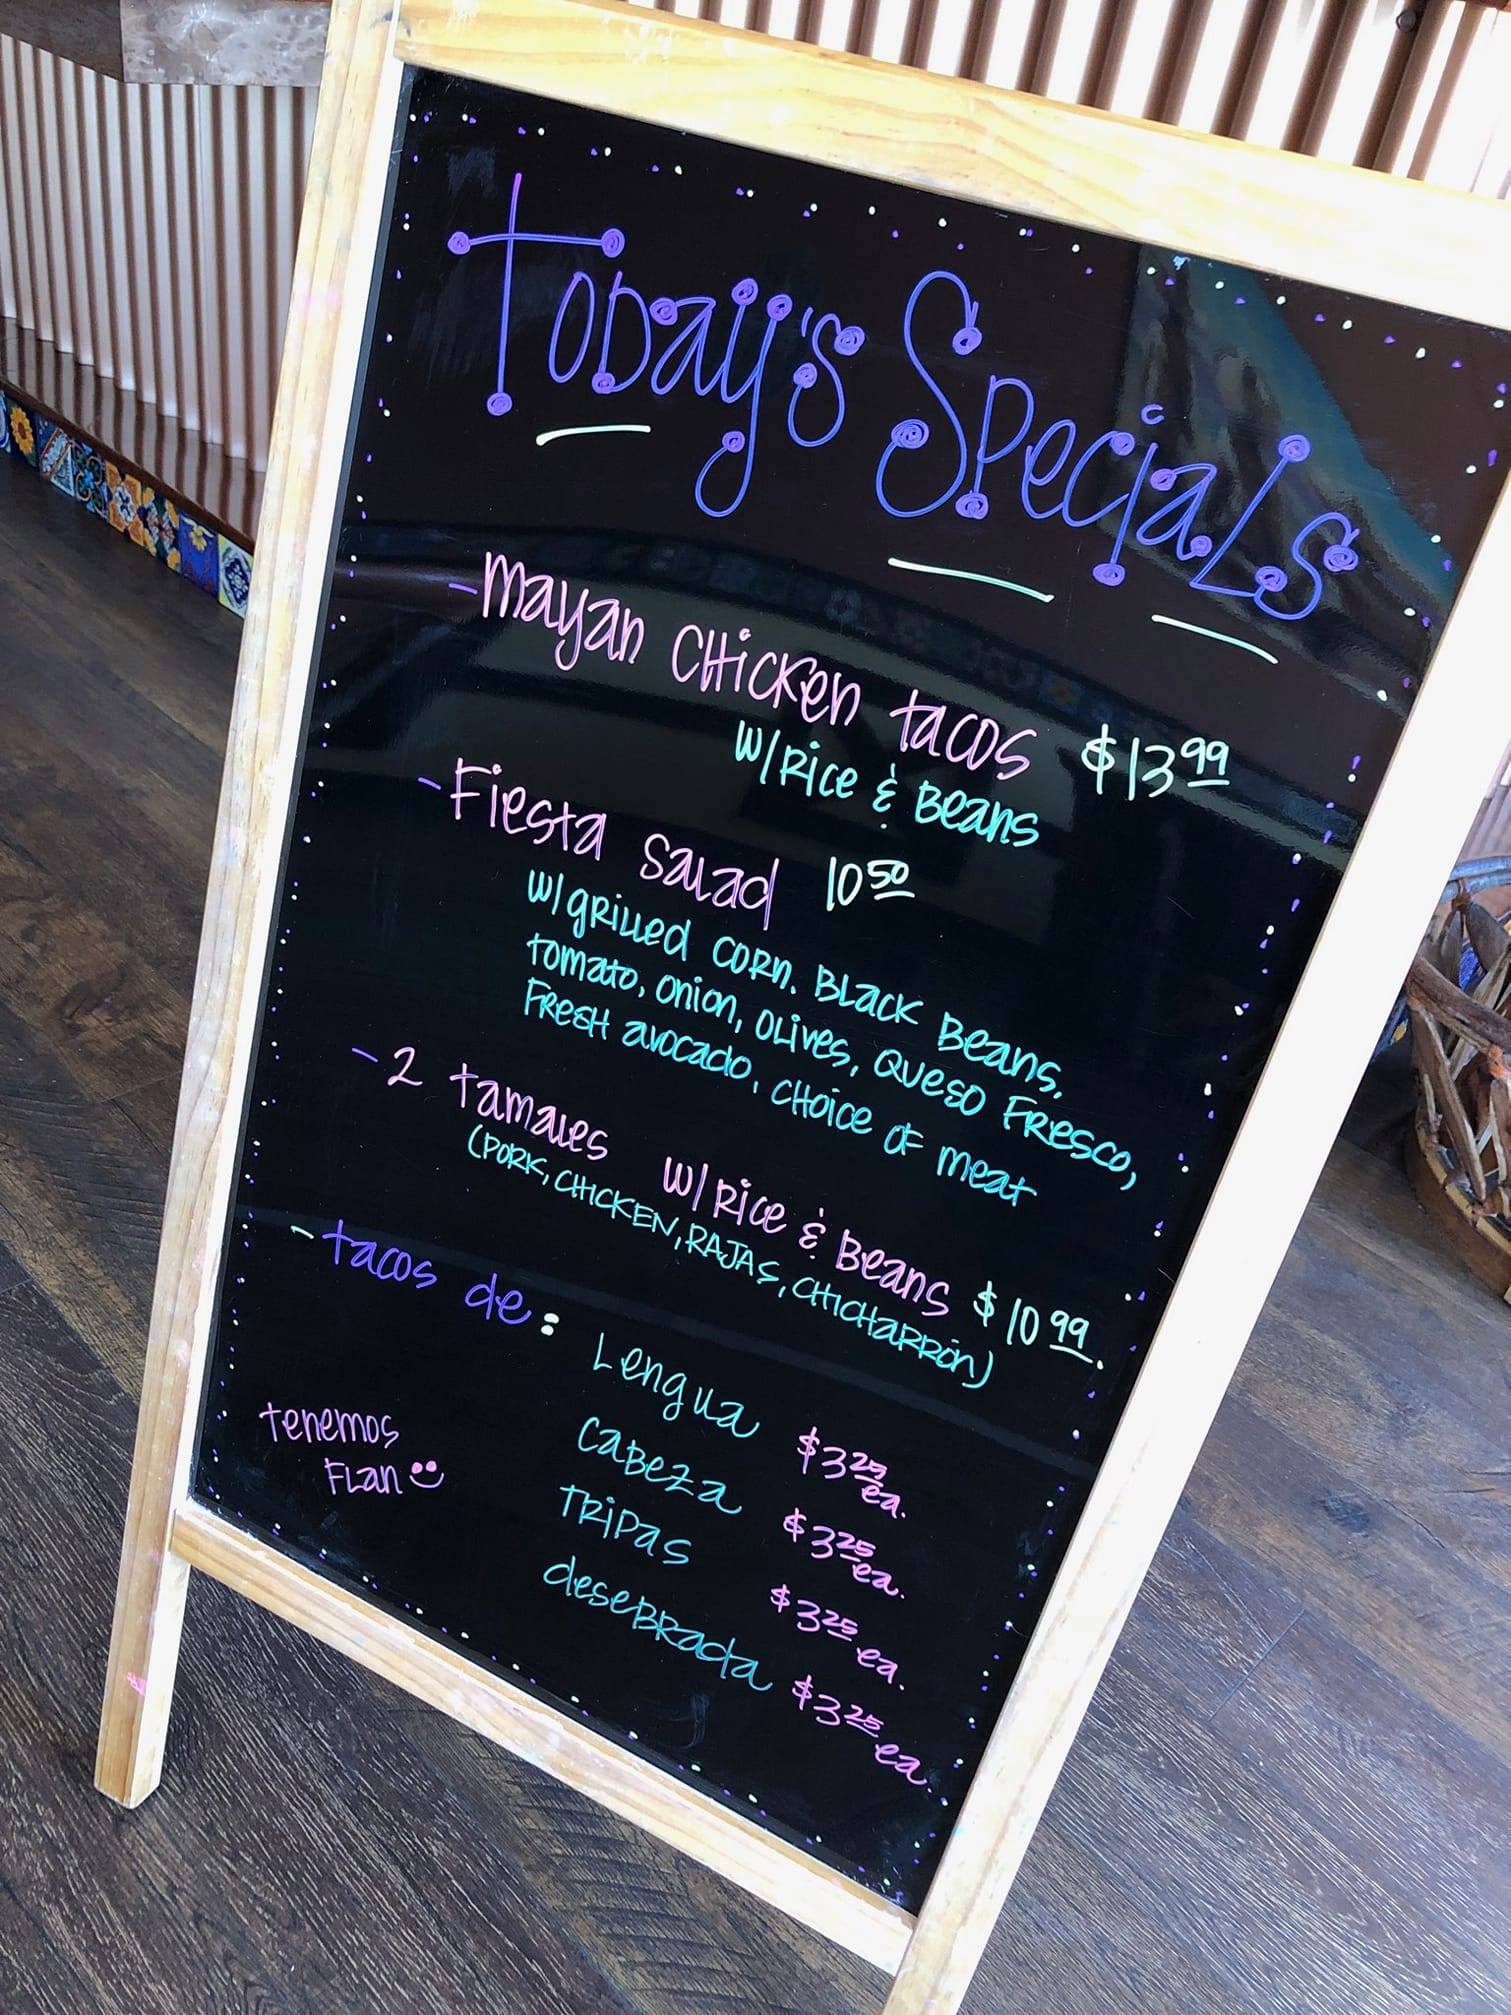 Today's Specials
- Mayan Chicken tacos $13.99
w/Rice & Beans
- Fiesta Salad 10.50
w/grilled corn. Black Beans,
tomato, onion, olives, Queso Fresco,
Fresh avocado, choice of meat
- 2 tamales w/Rice & Beans $10.99.
(Pork, Chicken, Rajas, Chicharrón)
- tacos de:
Lengua $3.25 ea.
Cabeza $3.25 ea.
Tripas $3.25 ea.
deseBRada $3.25 ea.
tenemos
Flan